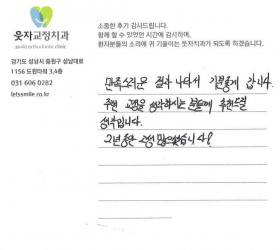 소중한 후기 감사드립니다.
함께 할 수 있었던 시간에 감사하며,
환자분들의 소리에 귀 기울이는 웃자치과가 되도록 하겠습니다.
웃자교정치과
smile orthodontic clinic
경기도 성남시 중원구 성남대로
1156 도원타워 3,4층
031 606 0282
letssmile.co.kr
만족스러운 결과 나와서 기분좋게 갑니다.
주변 교정을 생각하시는 분들께 추천드릴
생각입니다.
2년동안 고생 많으셨습니다!